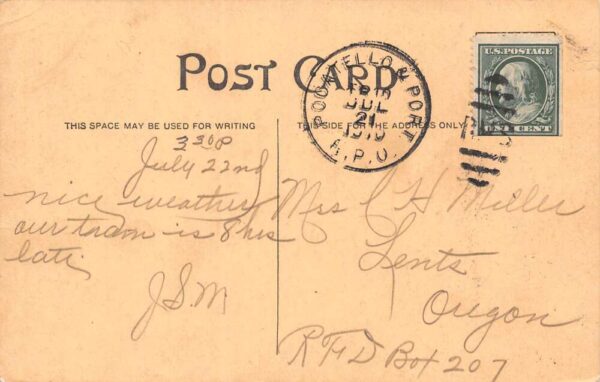 POST CARD
THIS SPACE MAY BE USED FOR WRITING
THIS SIDE FOR THE ADDRESS ONLY
POCATELLO & PORT.
JUL
21
R.P.O.
U.S. POSTAGE
ONE CENT
3 30 P
July 22nd
nice weather
our train is 8 hrs
late
J.S.M
Mrs C H Miller
Lents
Oregon
RFD Box 207